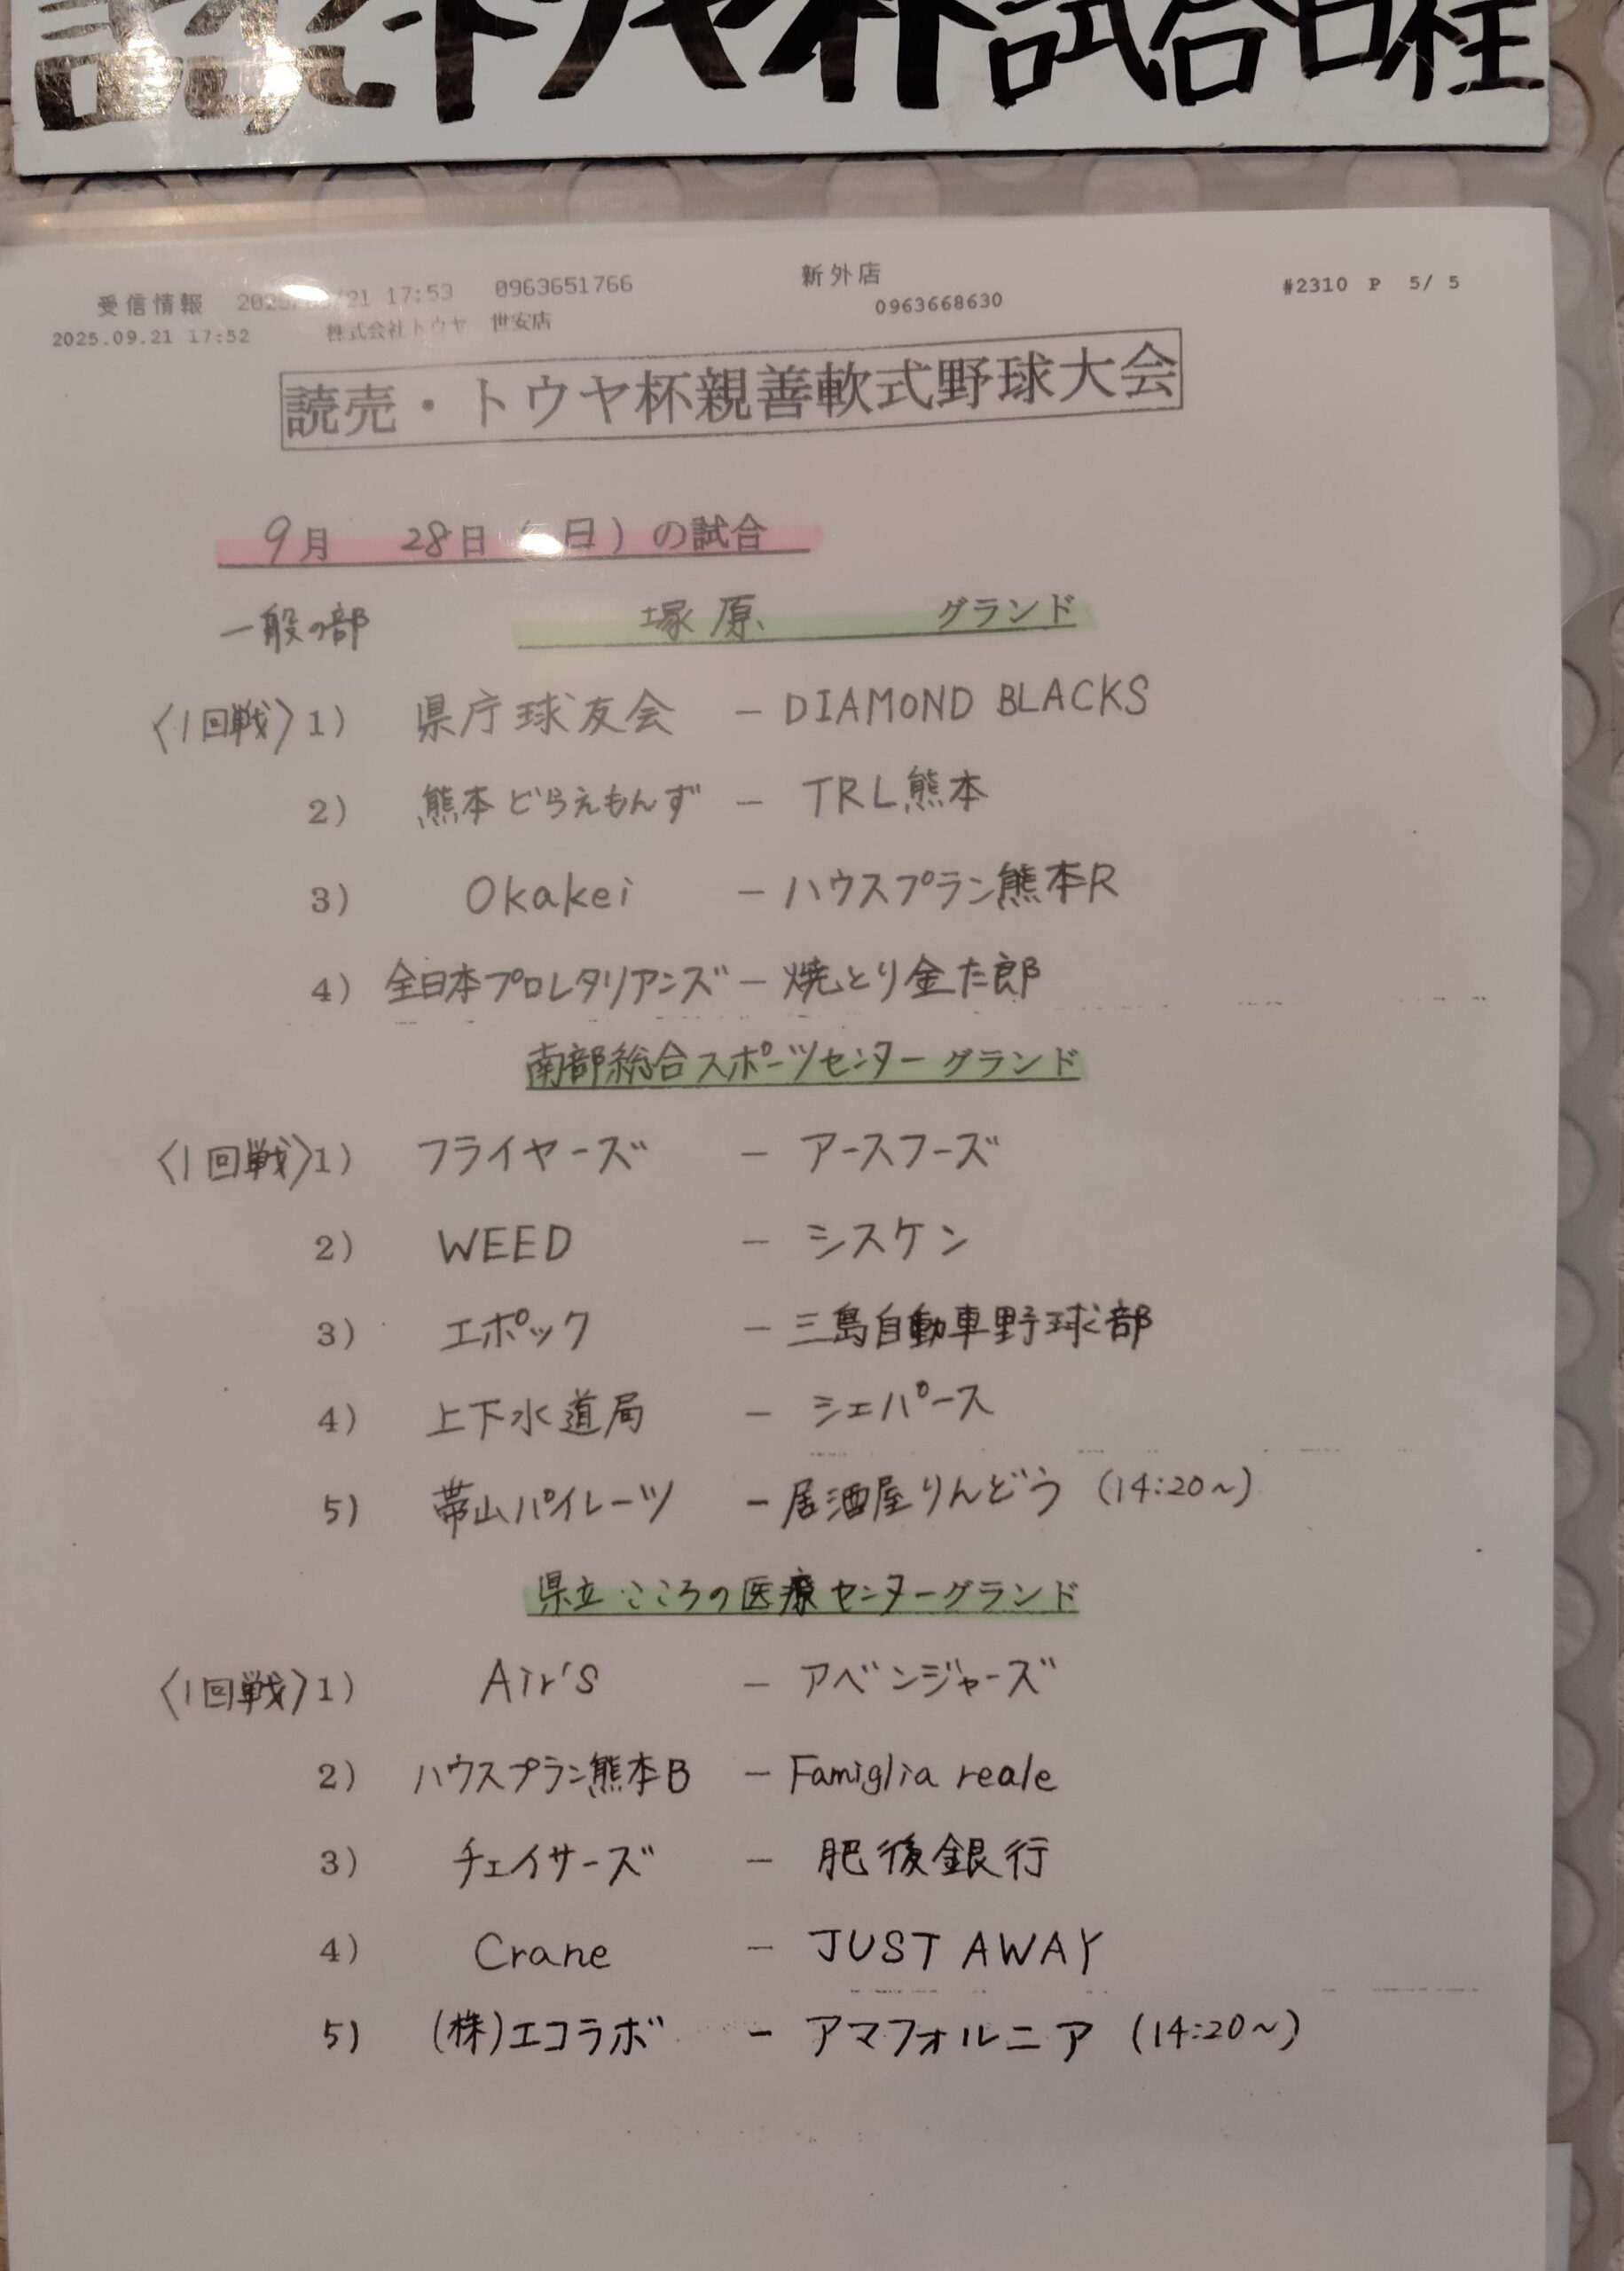 読売トウヤ杯試合日程
受信情報 2025/09/21 17:53 0963651766 新外店 #2310 P 5/ 5
2025.09.21 17:52 株式会社トウヤ 世安店 0963668630
読売・トウヤ杯親善軟式野球大会
9月 28日(日)の試合
一般の部 塚原 グランド
〈1回戦〉1) 県庁球友会 - DIAMOND BLACKS
2) 熊本どらえもんず - TRL熊本
3) Okakei - ハウスプラン熊本R
4) 全日本プロレタリアンズ - 焼とり金た郎
南部総合スポーツセンターグランド
〈1回戦〉1) フライヤーズ - アースフーズ
2) WEED - シスケン
3) エポック - 三島自動車野球部
4) 上下水道局 - シェパース
5) 帯山パイレーツ - 居酒屋りんどう (14:20~)
県立こころの医療センターグランド
〈1回戦〉1) Air's - アベンジャーズ
2) ハウスプラン熊本B - Famiglia reale
3) チェイサーズ - 肥後銀行
4) Crane - JUST AWAY
5) (株)エコラボ - アマフォルニア (14:20~)